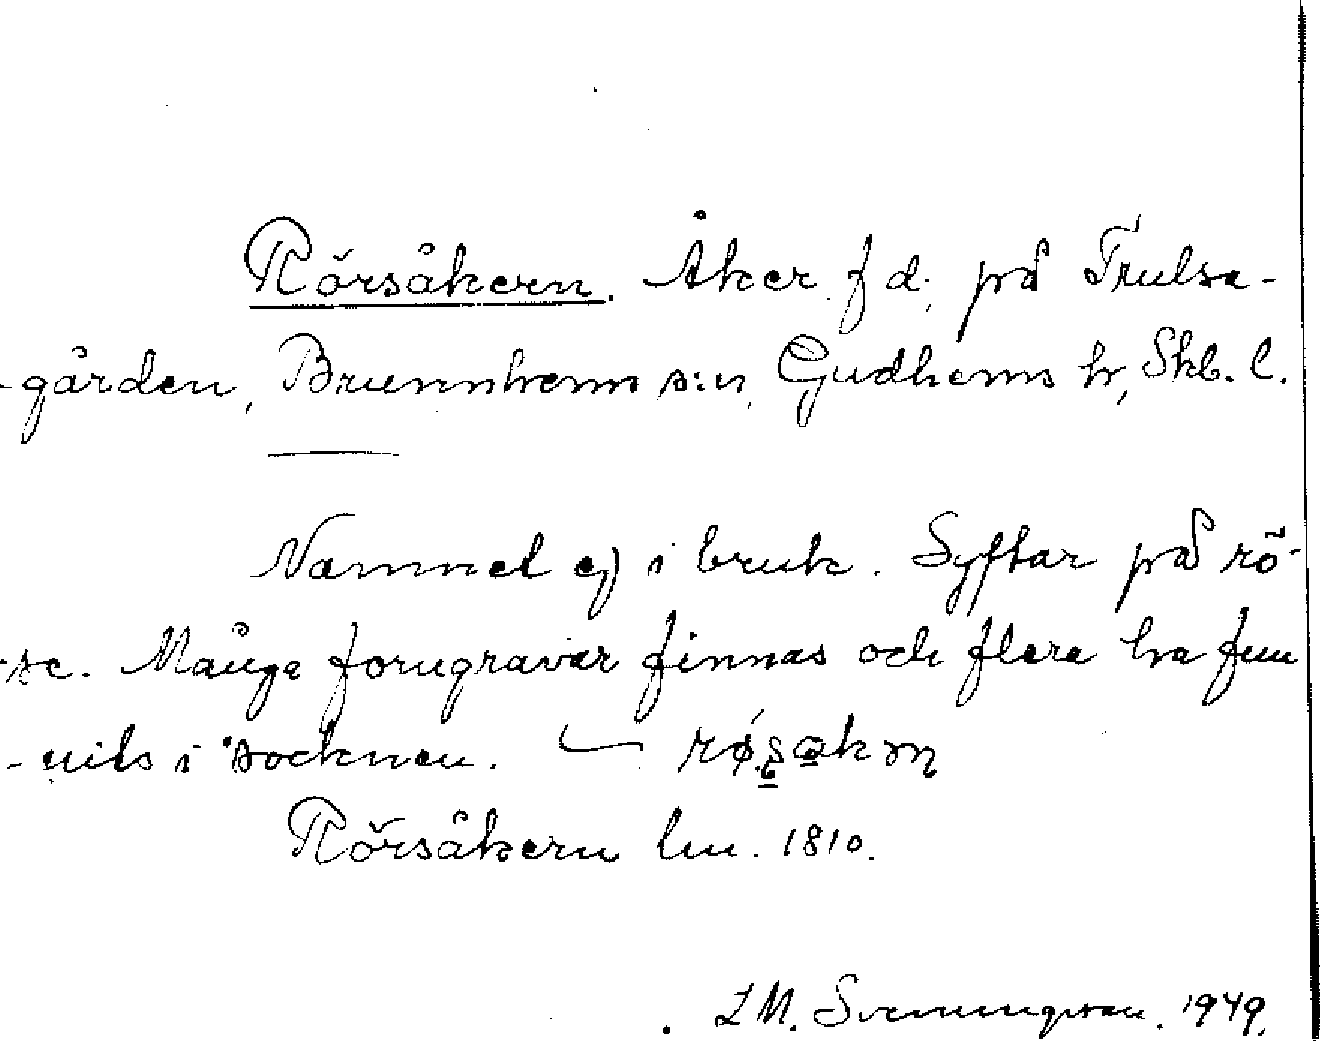 Rörsåkern. Åker f d. på Trulsa-
-gården, Brunnhems s:n, Gudhems hr, Skb. l.
Namnet ej i bruk. Syftar på rö-
-se. Många forngravar finnas och flera ha fun
-nits i socknen. — røsakɔn
Rörsåkern lm. 1810.
L M. Svenungsson. 1949.